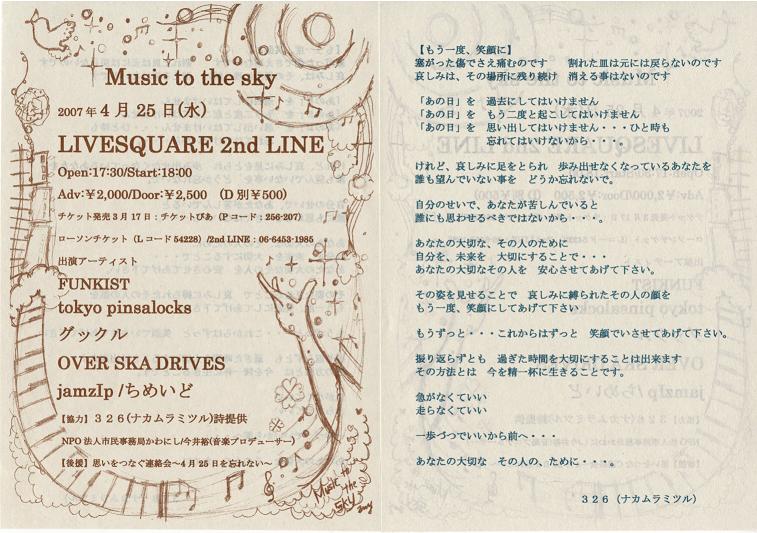 Music to the sky
2007年4月25日(水)
LIVESQUARE 2nd LINE
Open:17:30/Start:18:00
Adv:¥2,000/Door:¥2,500 (D別¥500)
チケット発売3月17:チケットぴあ (Pコード:256-207)
ローソンチケット (Lコード54228) /2nd LINE:06-6453-1985
出演アーティスト
FUNKIST
tokyo pinsalocks
グックル
OVER SKA DRIVES
jamzIp /ちめいど
【協力】326(ナカムラミツル)詩提供
NPO法人市民事務局かわにし/今井裕(音楽プロデューサー)
【後援】思いをつなぐ連絡会～4月25日を忘れない～
Music to the sky
【もう一度、笑顔に】
塞がった傷でさえ痛むのです 割れた皿は元には戻らないのです
哀しみは、その場所に残り続け 消える事はないのです
「あの日」を 過去にしてはいけません
「あの日」を もう二度と起こしてはいけません
「あの日」を 思い出してはいけません・・・ひと時も
忘れてはいけないから・・・・。
けれど、哀しみに足をとられ 歩み出せなくなっているあなたを
誰も望んでいない事を どうか忘れないで。
自分のせいで、あなたが苦しんでいると
誰にも思わせるべきではないから・・・。
あなたの大切な、その人のために
自分を、未来を 大切にすることで・・・
あなたの大切なその人を 安心させてあげて下さい。
その姿を見せることで 哀しみに縛られたその人の顔を
もう一度、笑顔にしてあげて下さい
もうずっと・・・これからはずっと 笑顔でいさせてあげて下さい。
振り返らずとも 過ぎた時間を大切にすることは出来ます
その方法とは 今を精一杯に生きることです。
急がなくていい
走らなくていい
一歩づつでいいから前へ・・・
あなたの大切な その人の、ために・・・。
326 (ナカムラミツル)